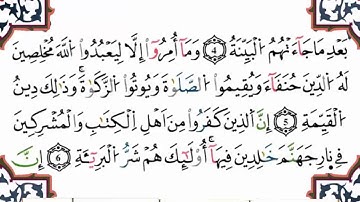 بَعْدِ مَا جَآءَتْهُمُ الْبَيِّنَةُ ﴿4﴾ وَمَآ اُمِرُوٓا اِلَّا لِيَعْبُدُوا اللّٰهَ مُخْلِصِينَ
لَهُ الدِّينَ حُنَفَآءَ وَيُقِيمُوا الصَّلٰوةَ وَيُؤْتُوا الزَّكٰوةَ وَذٰلِكَ دِينُ
الْقَيِّمَةِ ﴿5﴾ اِنَّ الَّذِينَ كَفَرُوا مِنْ اَهْلِ الْكِتَابِ وَالْمُشْرِكِينَ
فِي نَارِ جَهَنَّمَ خَالِدِينَ فِيهَا اُولٰٓئِكَ هُمْ شَرُّ الْبَرِيَّةِ ﴿6﴾ اِنَّ